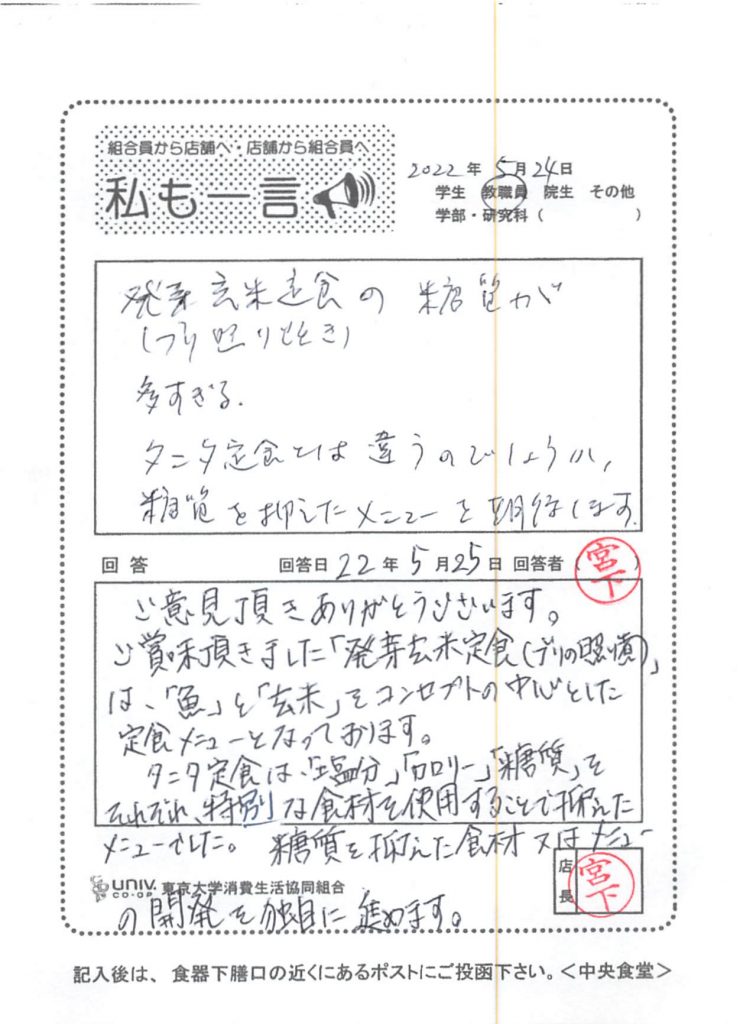 組合員から店舗へ・店舗から組合員へ
私も一言
2022年 5月24日
学生 教職員 院生 その他
学部・研究科( )
発芽玄米定食の 糖質が
(ブリ照りどき)
多すぎる.
タニタ定食とは 違うのでしょうか,
糖質を抑えたメニューを期待します.
回答 回答日 22年5月25日 回答者(宮下)
ご意見頂きありがとうございます。
ご賞味頂きました「発芽玄米定食(ブリの照り焼)」
は、「魚」と「玄米」をコンセプトの中心とした
定食メニューとなっております。
タニタ定食は、「塩分」「カロリー」「糖質」を
それぞれ、特別な食材を使用することで抑えた
メニューでした。 糖質を抑えた食材又はメニュー
の開発を独自に進めます。
UNIV. CO-OP 東京大学消費生活協同組合
店長 宮下
記入後は、食器下膳口の近くにあるポストにご投函下さい。<中央食堂>